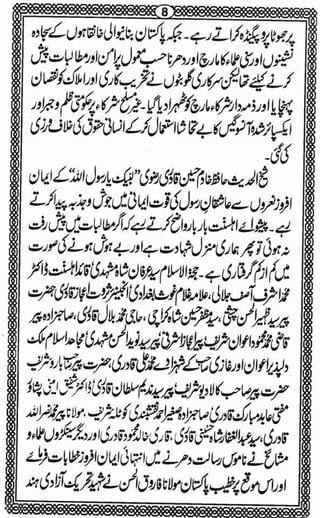 8
پر جھوٹا پروپیگنڈہ کراتے رہے۔ جبکہ پاکستان بنانیوالی خانقاہوں کے سجادہ
نشینوں اور سنی علماء کا مارچ اور دھرنا حسب معمول پرامن اور مطالبات پیش
کرنے کیلئے تھا لیکن سرکاری گلوبٹوں نے تخریب کاری اور املاک کو نقصان
پہنچایا اور ذمہ دار شرکاء مارچ کو ٹھہرا دیا گیا۔ غیر مسلح شرکاء پر حکومتی ظلم و جبر اور
ایکسپائر شدہ آنسو گیس کا بے تحاشا استعمال کر کے انسانی حقوق کی خلاف ورزی
کی گئی۔
شیخ الحدیث حافظ خادم حسین قادری رضوی "لبیک یا رسول اللہ" کے ایمان
افروز نعروں سے عاشقان رسول کی قوت ایمانی میں جوش و جذبہ پیدا کرتے
رہے۔ پیشوائے اہلسنت بار بار واضح کرتے رہے کہ اگر مطالبات میں پیش رفت
نہ ہوئی تو پھر ہماری منزل شہادت ہے اور بے ہوش ہونے کی صورت
میں کم از کم گرفتاری ہے۔ حجۃ الاسلام سید عرفان شاہ مشہدی قائد اہلسنت ڈاکٹر
محمد اشرف آصف جلالی، علامہ غلام غوث بغدادی انجینئر ثروت اعجاز قادری حضرت
پیر سید ظہیر الحسن چشتی، سید مظفر حسین شاہ کراچی، حاجی محمد بلال قادری، صاحبزادہ پیر
محمد محمود اعوان پیر سید نوید الحسن مشہدی مجاہد اسلام ملک
دلپذیر اعوان اور غازی صاحب کے شہزادے محمد علی قادری، حضرت پیر
حضرت پیر صاحب کالا دیو شریف پیر سید ندیم سلطان قادری ڈاکٹر شفیق امینی پشاور
مفتی عابد مبارک قادری صاحبزادہ صغیر احمد نقشبندی شریف، مولانا پیر محمد نصر اللہ
قادری، سید عبدالغفار شاہ حنیفی قادری، قاری خالد محمود قادری اور دیگر سینکڑوں علماء و
مشائخ نے ناموس رسالت دھرنے میں انتہائی ایمان افروز خطابات فرمائے
اور اس موقع پر خطیب پاکستان مولانا فاروق الحسن نے شہید تحریک آزادی ہند